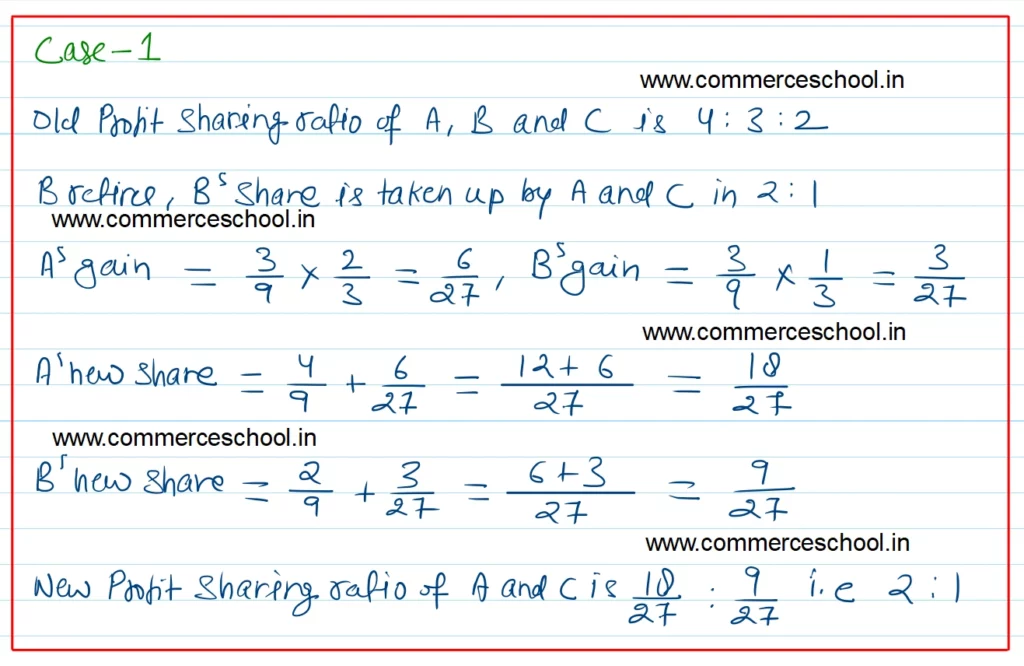 Case-1
www.commerceschool.in
Old Profit Sharing ratio of A, B and C is 4 : 3 : 2
B retire, B's Share is taken up by A and C in 2 : 1
www.commerceschool.in
A's gain = 3/9 × 2/3 = 6/27, B's gain = 3/9 × 1/3 = 3/27
www.commerceschool.in
A's new share = 4/9 + 6/27 = 12+6/27 = 18/27
www.commerceschool.in
B's new share = 2/9 + 3/27 = 6+3/27 = 9/27
www.commerceschool.in
New Profit Sharing ratio of A and C is 18/27 : 9/27 i.e 2 : 1